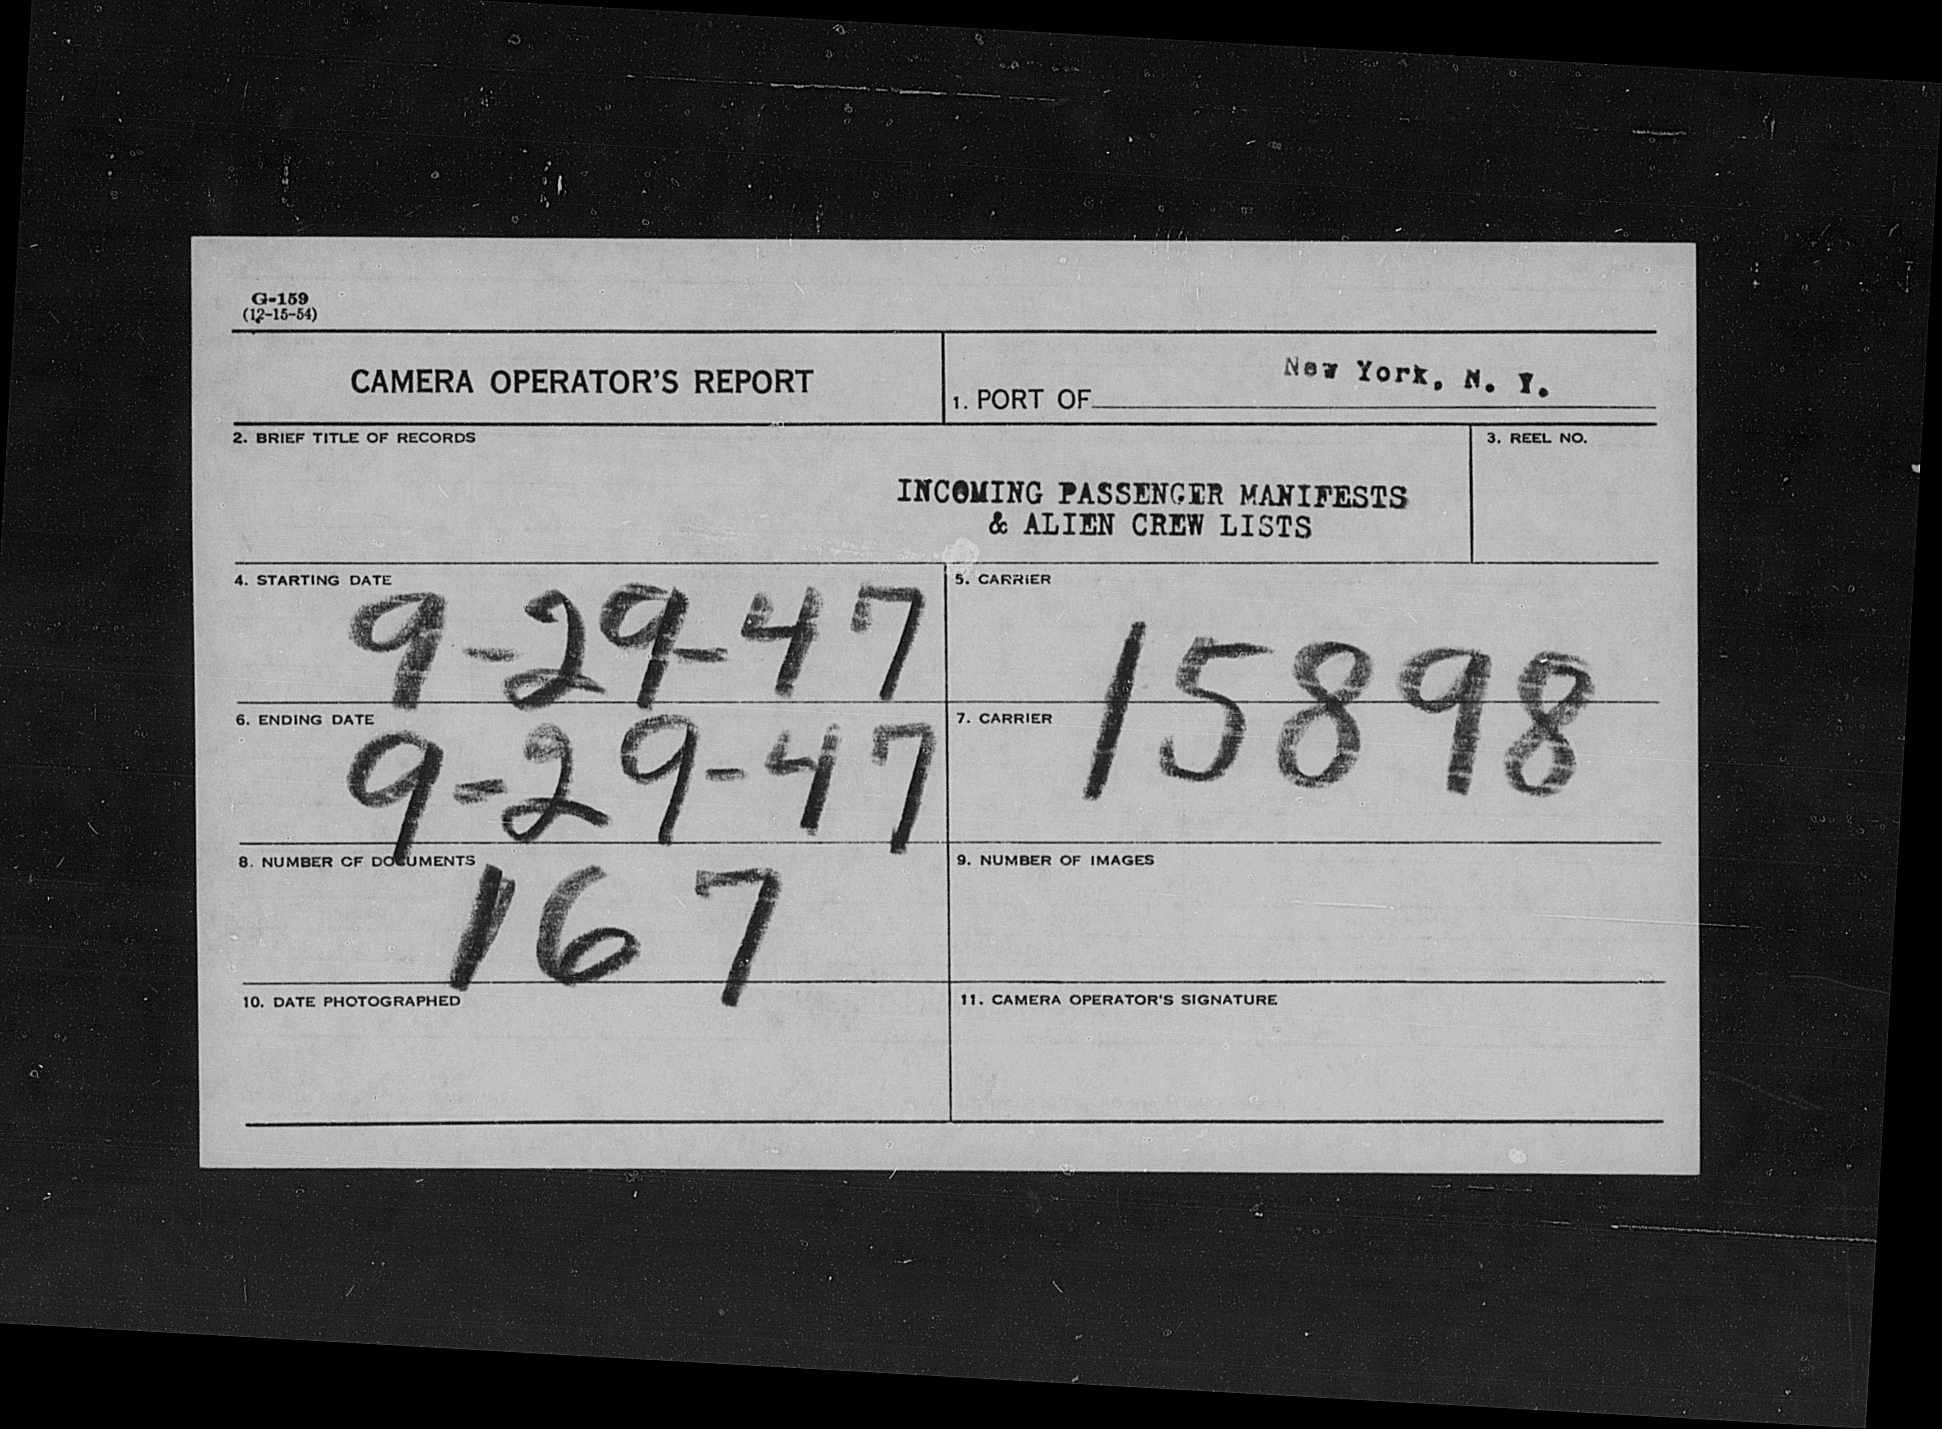 G-159
(12-15-54)
CAMERA OPERATOR'S REPORT
1. PORT OF New York, N. Y.
2. BRIEF TITLE OF RECORDS
INCOMING PASSENGER MANIFESTS
& ALIEN CREW LISTS
3. REEL NO.
4. STARTING DATE
9-29-47
5. CARRIER
15898
6. ENDING DATE
9-29-47
7. CARRIER
8. NUMBER OF DOCUMENTS
167
9. NUMBER OF IMAGES
10. DATE PHOTOGRAPHED
11. CAMERA OPERATOR'S SIGNATURE